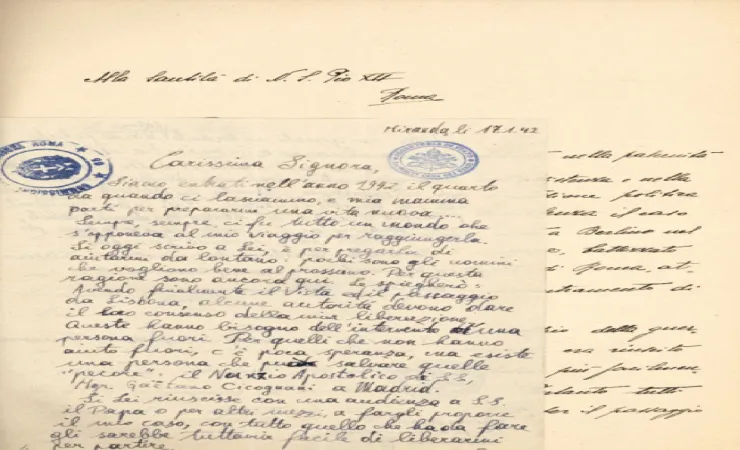 Alla Santità di N. S. Pio XII
Roma
Miranda, li 17.1.42
ROMA
Carissima Signora,
Siamo entrati nell'anno 1942 il quarto
da quando ci lasciammo, e mia mamma
partì per prepararmi una vita nuova...
Sempre, sempre ci fu tutto un mondo che
s'opponeva al mio viaggio per raggiungerla.
Si oggi scrivo a Lei, è per pregarla di
aiutarmi da lontano: pochi sono gli uomini
che vogliono bene al prossimo. Per questa
ragione sono ancora qui. Le spagherò:
Avendo finalmente il visto ed il passaggio
da Lisbona, alcune autorità devono dare
il loro consenso della mia liberazione.
Queste hanno bisogno dell'intervento di una
persona fuori. Per quelli che non hanno
aiuto fuori, c'è poca speranza, ma esiste
una persona che può salvare quelle
"pecore": il Nunzio Apostolico di S.S.,
Mgr. Gaetano Cicognani a Madrid.
Si Lei riuscisse con una audienza a S.S.
il Papa o per altri mezzi, a fargli proporre
il mio caso, con tutto quello che ha da fare
gli sarebbe tuttavia facile di liberarmi
per partire.
nella paternità
e nella
politica
il caso
Berlino nel
di Roma, at-
di
della guer-
era riuscito
più
tutti
il passaggio